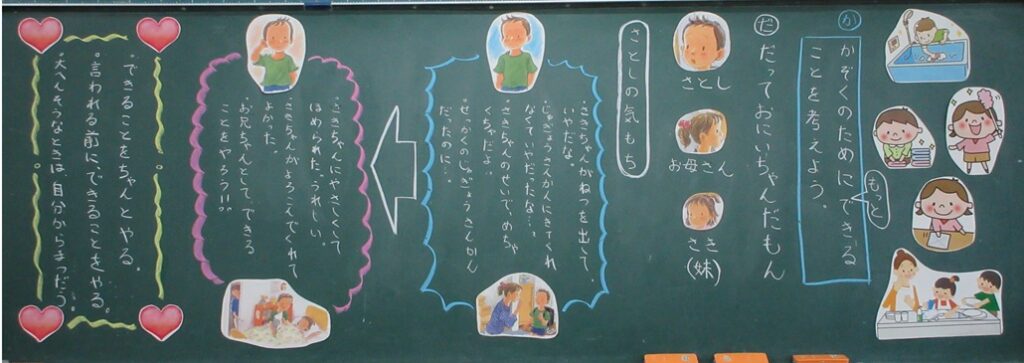 か
かぞくのためにできる
ことを考えよう。
もっと
だ
だっておにいちゃんだもん
さとし
お母さん
さき
(妹)
さとしの気もち
・さきちゃんがねつを出して、
いやだな。
・じゅぎょうさんかんにきてくれ
なくていやだったな…
・さきちゃんのせいで、めちゃ
くちゃだよ。
・せっかくのじゅぎょうさんかん
だったのに…
・さきちゃんにやさしくして
ほめられた。うれしい。
・さきちゃんがよろこんでくれて
よかった。
・お兄ちゃんとして、できる
ことをやろう!!
・できることをちゃんとやる。
・言われる前にできることをやる。
・大へんそうなときは自分から手つだう